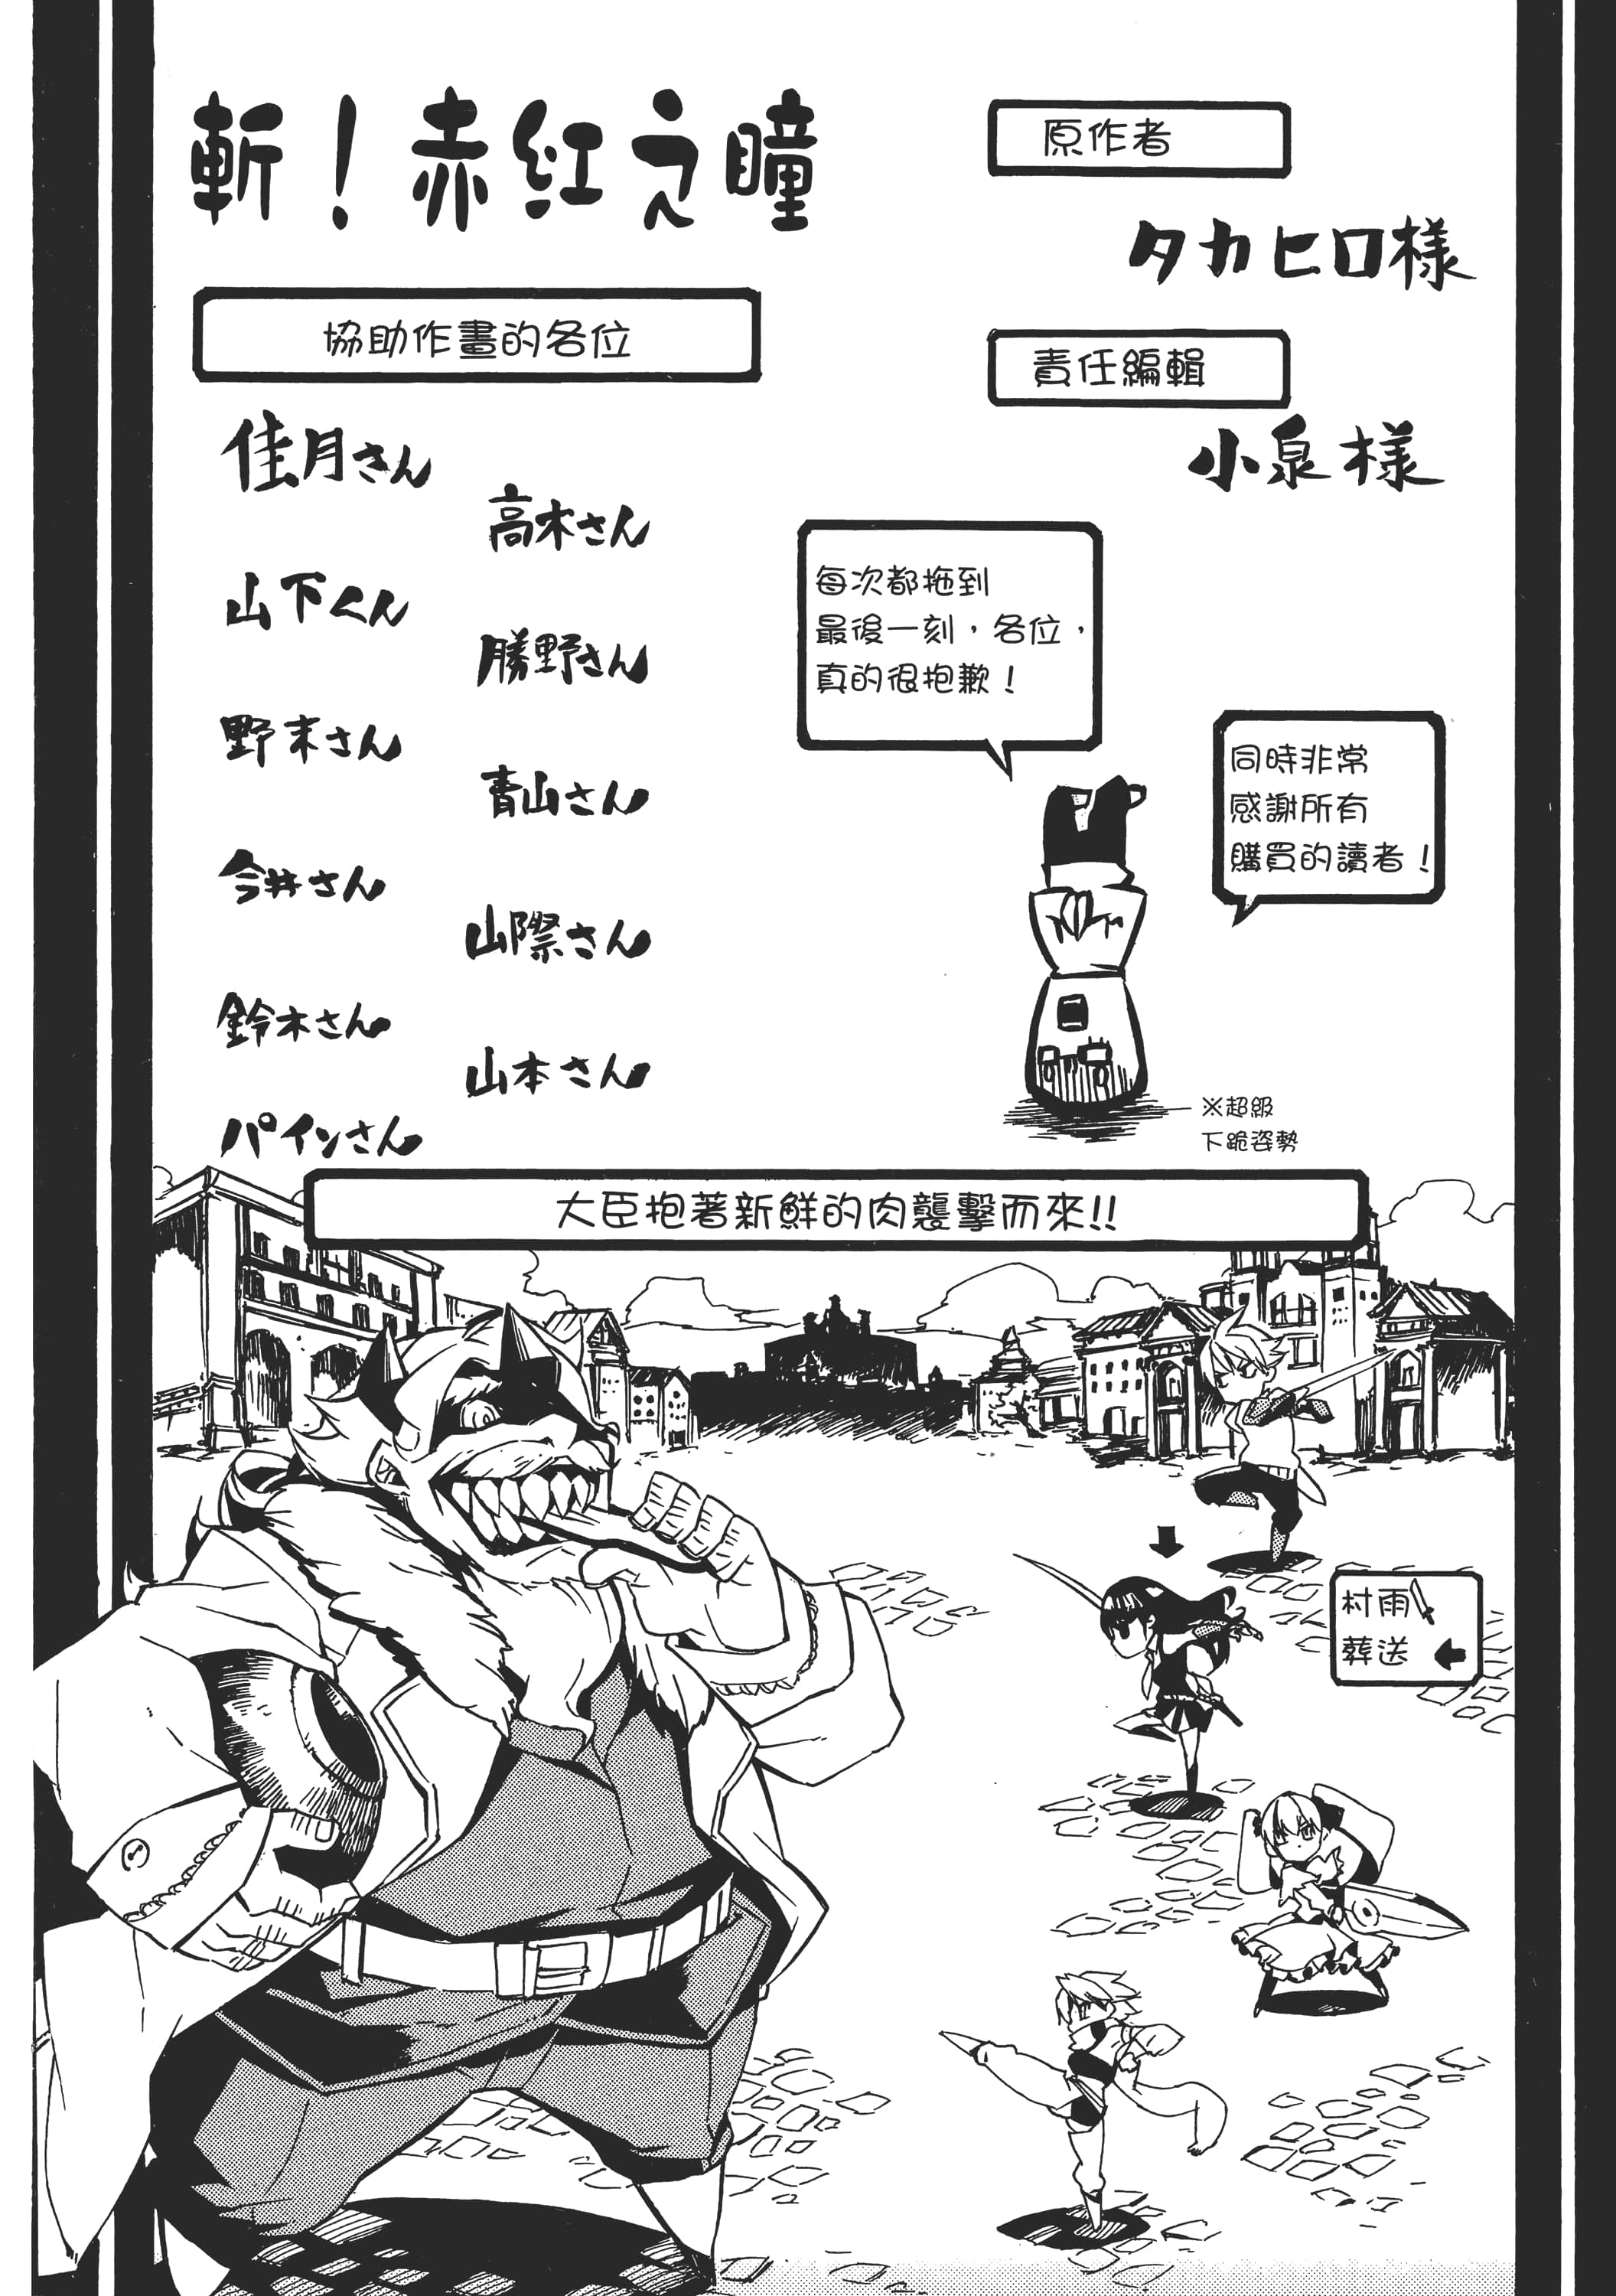 斬！赤紅之瞳
原作者
タカヒロ様
責任編輯
小泉様
協助作畫的各位
佳月さん
高木さん
山下くん
勝野さん
野末さん
青山さん
今井さん
山際さん
鈴木さん
山本さん
パインさん
每次都拖到
最後一刻，各位，
真的很抱歉！
同時非常
感謝所有
購買的讀者！
※超級
下跪姿勢
大臣抱著新鮮的肉襲擊而來!!
村雨
葬送